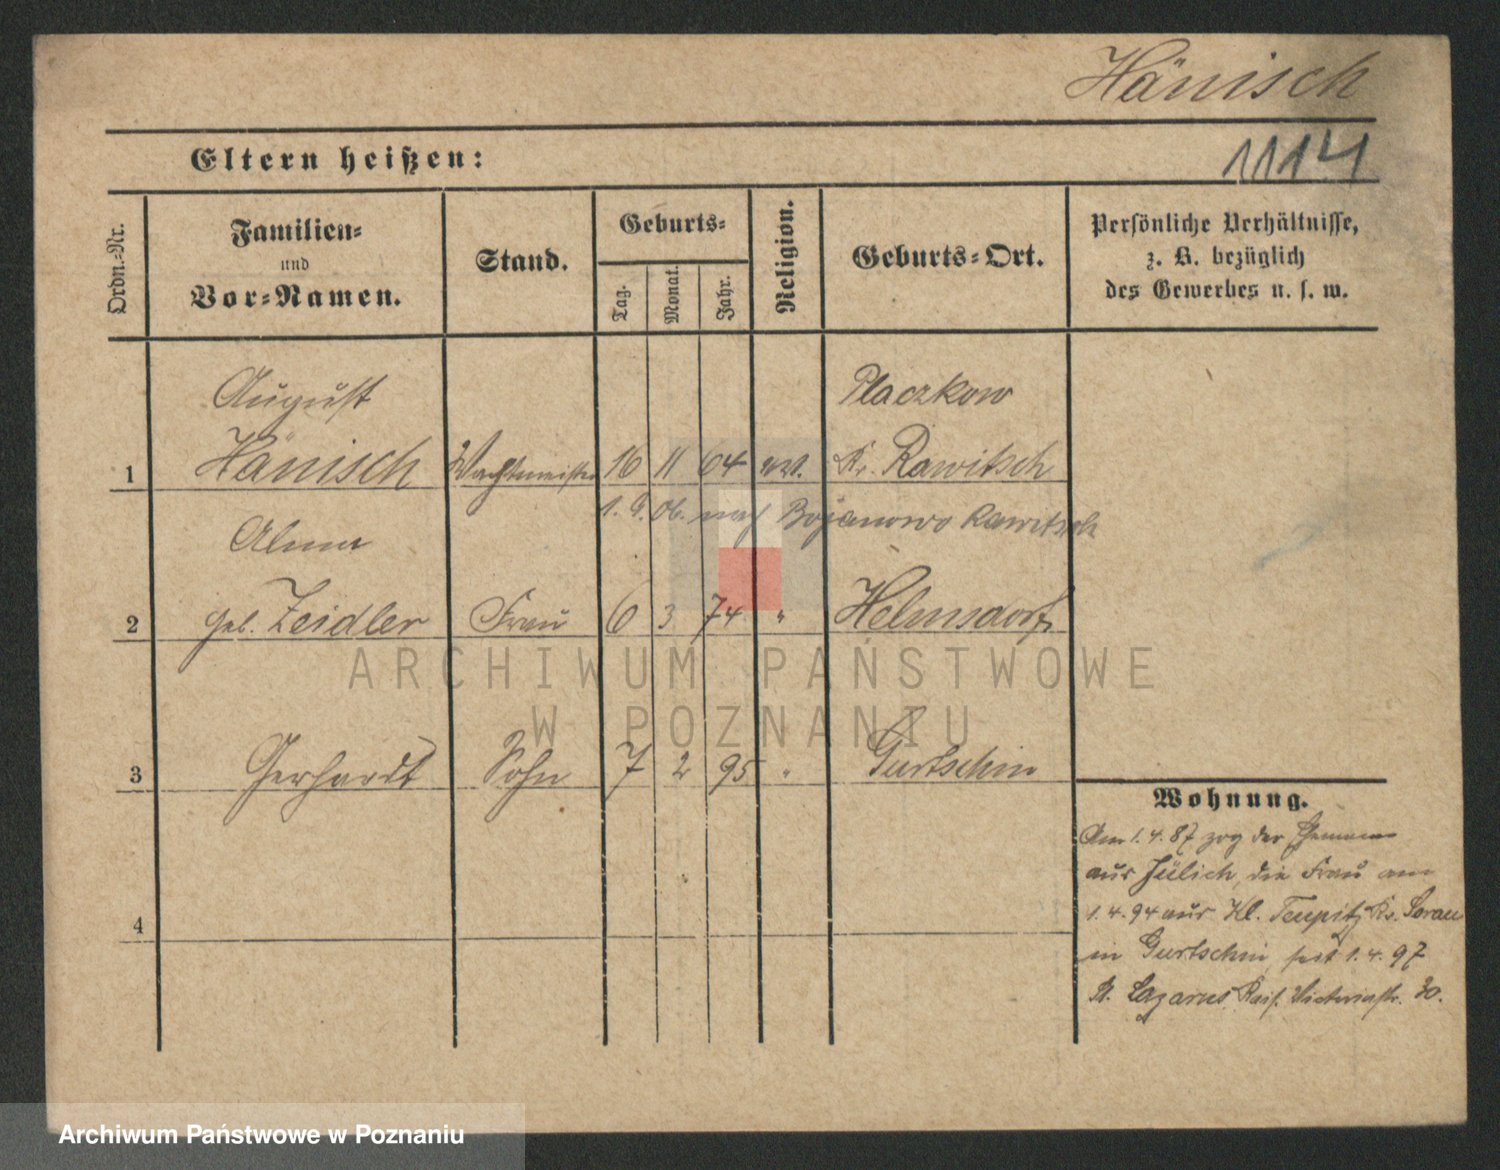 Hänisch
Eltern heißen:
1114
Ordn.-Nr.
Familien-
und
Vor-Namen.
Stand.
Geburts-
Tag.
Monat.
Jahr.
Religion.
Geburts-Ort.
Persönliche Verhältnisse,
z. B. bezüglich
des Gewerbes u. s. w.
August Placzkow
1 Hänisch Wachtmeister 16 11 64 ev. Kr. Rawitsch
1. 9. 06. nach Bojanowo Rawitsch
Alma
2 geb. Zeidler Frau 6 3 74 " Helmsdorf
3 Gerhardt Sohn 7 2 95 " Gurtschin
4
Wohnung.
Am 1.4.87 zog der Ehemann
aus Jülich, die Frau am
1.4.94 aus Kl. Teupitz Kr. Sorau
in Gurtschin, seit 1.4.97
St. Lazarus, Kais. Victoriastr. 30.
ARCHIWUM PAŃSTWOWE
W POZNANIU
Archiwum Państwowe w Poznaniu